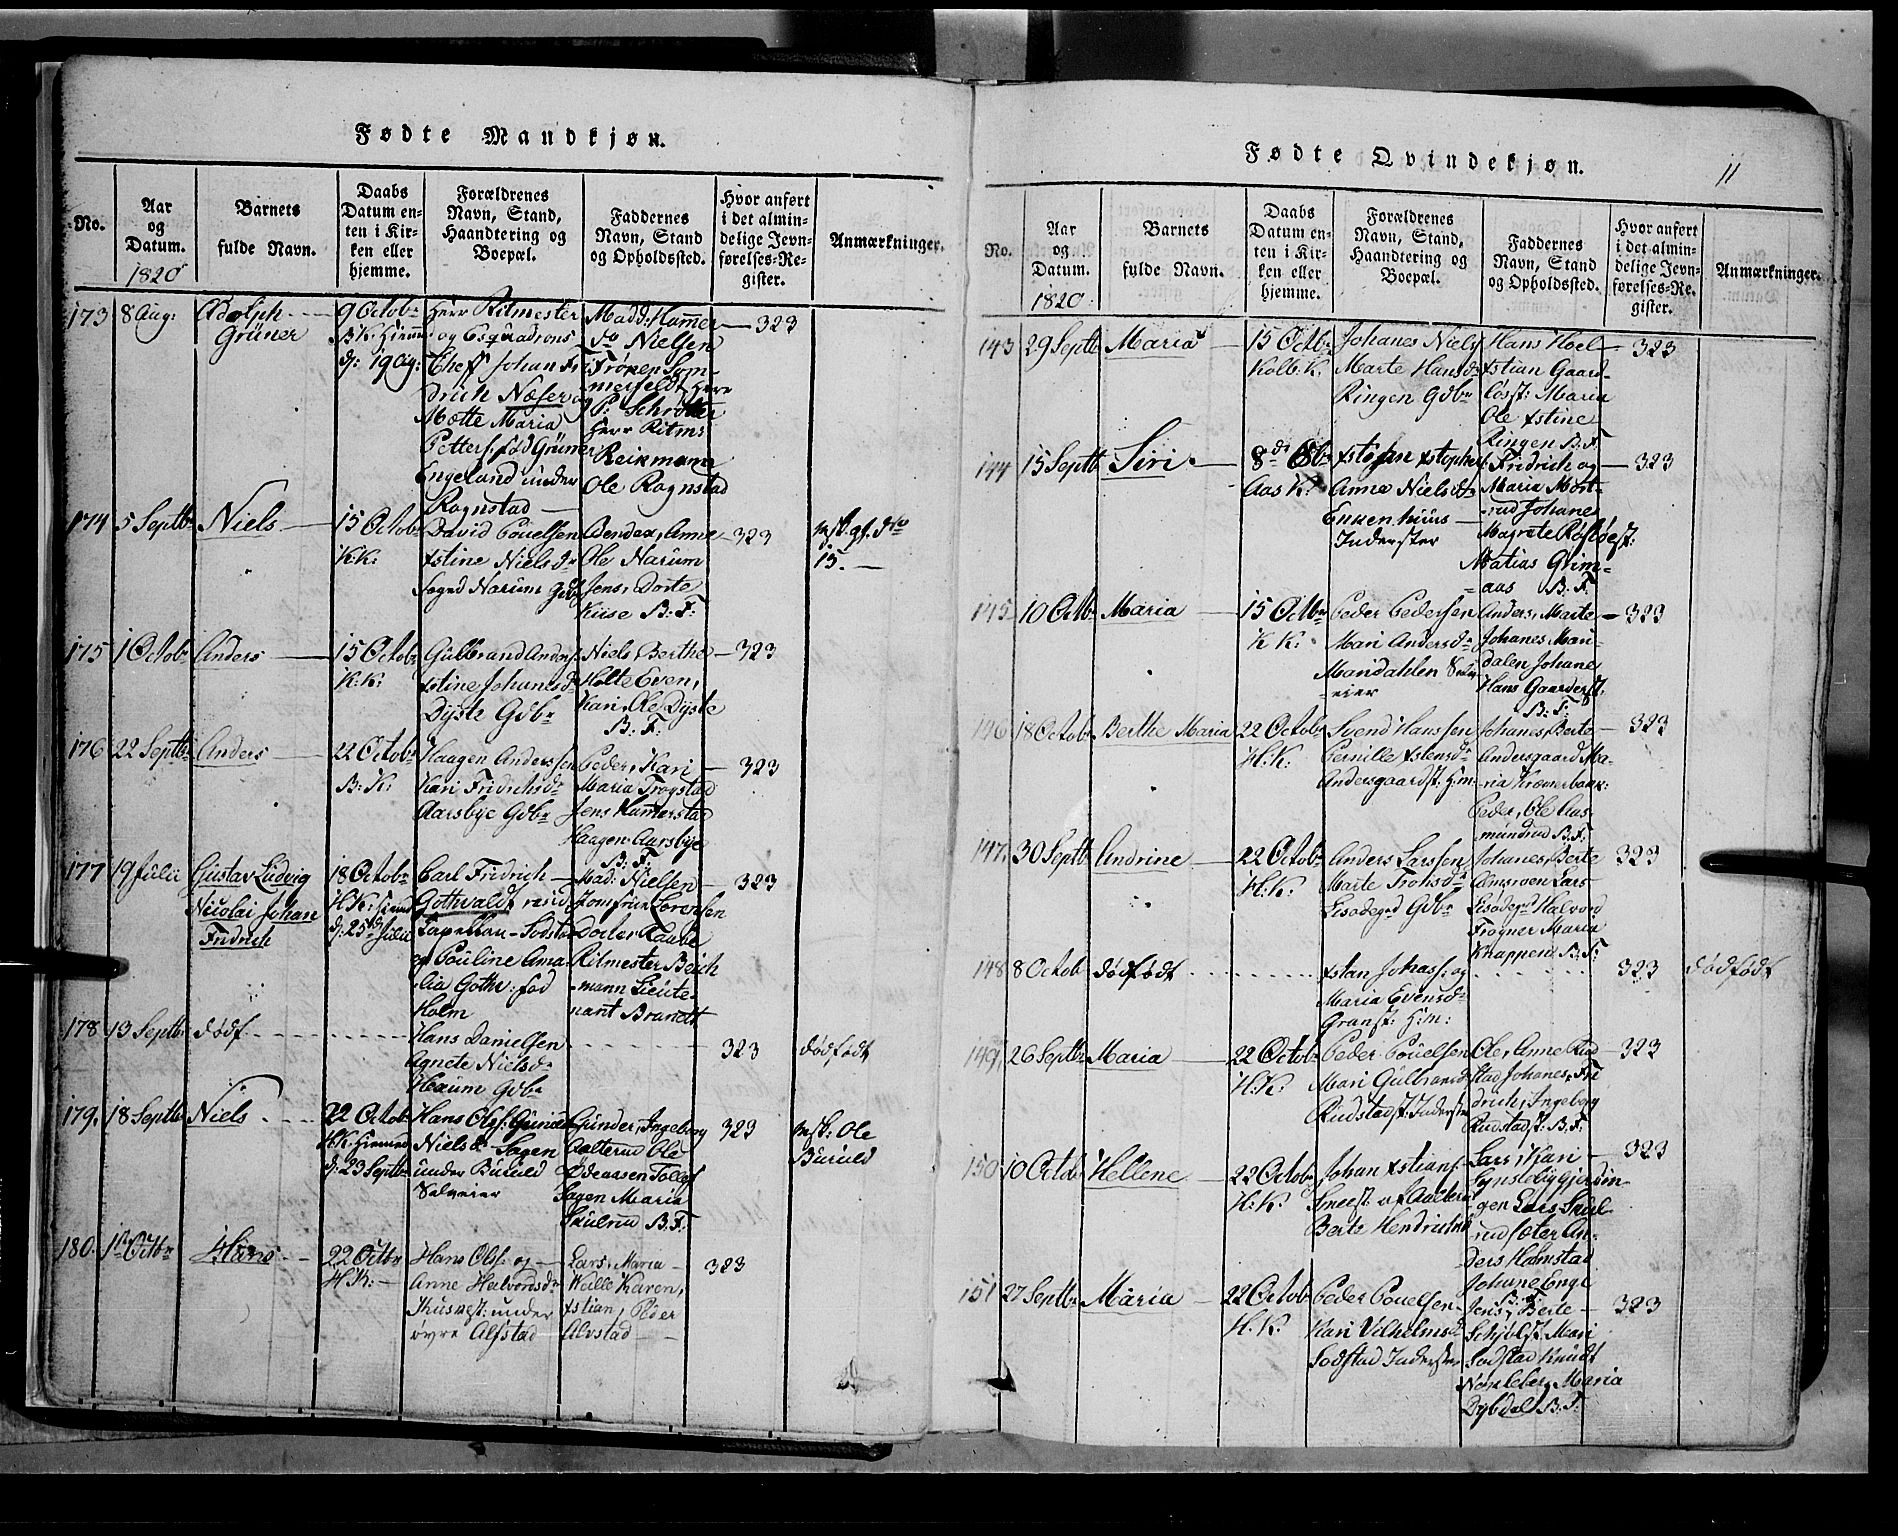 Fødte Mandkjøn.
No.
Aar
og
Datum.
1820
Barnets
fulde Navn.
Daabs
Datum en-
ten i Kir-
ken eller
hjemme.
Forældrenes
Navn, Stand,
Haandtering og
Boepæl.
Faddernes
Navn, Stand
og Opholdssted.
Hvor anført
i det almin-
delige Jevn-
førelses-Re-
gister.
Anmærkninger.
173
8 Aug:
Adolph
Grüner
9 Octobr
BK. hiemme
d: 19 Aug:
Herr Ritmester
og Esquadrons
Cheff Johan F
drich Næser og
Mætte Maria
Petters: fød Grüner
Engeland under
Rognstad
Madd: Hammer
Nielsen
Frøken Som-
merfeldt Herr
P: Schrøtter
Herr Ritm:
Reikmann
Ole Rognstad
323
174
5 Septbr
Niels
15 Octobr
K.K:
David Pouelsen
xstine Nielsdr
Sogned Narum Gdbr
Bendex, Anne
Ole Narum
Jens, Dorte
Kiise B: F:
323
15.
175
1 Octobr
Anders
15 Octobr
K:K:
Gulbrand Anders:
xstine Johanesdr
Dyste Gdbr
Niels, Berthe
Holte Even,
Kari, Ole Dyste
B: F:
323
176
22 Septbr
Anders
22 Octobr
B:K:
Haagen Anderssen
Kari Fridrichsdr
Aarsbye Gdbr
Peder, Kari
Maria Trogstad
Jens Hammerstad
Haagen Aarsbye
B: F:
323
177
19 Julii
Gustav Ludvig
Nicolai Johan
Fridrich
18 Octobr
H.K: hiemme
d: 25de Julii
Carl Fridrich
Gothvaldt resid
Capellan Sodstad
og Pouline Ama
lia Gothv: fød
Holm
Mad: Nielsen
Jomfrue Sørensen
Dorler Raabe
Ritmester Beich
mann Lieute-
nant Brandt
323
178
13 Septbr
dødf
Hans Danielsen
Agnete Nielsdr
Hexum Gdbr
323
dødfødt
179.
18 Septbr
Niels
22 Octobr
H.K. hiemme
d: 23 Septbr
Hans Ols: Gunild
Nielsdr Sagen
under Buruld
Selveier
Gunder, Ingeborg
Aalterud Ole
Ødenssen Tollef
Sagen Maria
Skulrud B: F:
323
msk: Ole
Buruld
180.
1ste Octbr
Hans
22 Octbr
H.K:
Hans Ols: og
Anne Halvorsdr
Huusmst: under
øvre Alfstad
Lars, Maria
Wille Karen,
xstian, Peder
Alvstad
323
Fødte Qvindekjøn.
11
No.
Aar
og
Datum.
1820.
Barnets
fulde Navn.
Daabs
Datum en-
ten i Kir-
ken eller
hjemme.
Forældrenes
Navn, Stand,
Haandtering og
Boepæl.
Faddernes
Navn, Stand
og Opholdssted.
Hvor anført
i det almin-
delige Jevn-
førelses-Re-
gister.
Anmærkninger.
143
29 Septbr
Maria
15 Octbr
Kolb: K.
Johanes Niels
Marte Hansdr
Ringen Gdbr
Hans Hoel
xstian Gaard-
løsst: Maria
Ole xstine
Ringen B: F.
323
144
15 Septbr
Siri
8de Octbr
Aas K:
xstofan xstophers:
Anne Nielsdr
Enkenhuus
Inderster
Fridrich og
Maria Mort-
rud Johane
Magrete Røstøest:
Matias Grim-
aas B: F.
323
145
10 Octbr
Maria
15 Octbr
K K:
Peder Pedersen
Mari Andersdr
Maridahlen Selv-
eier
Anders, Marte
Johanes Mari-
dalen Johane
Hans Gaarderst:
B: F:
323
146
18 Octobr
Berthe Maria
22 Octobr
H.K:
Svend Hanssen
Pernille xstensdr
Andersgaardst: H:m:
Johanes, Berte
Andersgaard Ma-
ria Kræmerbakk:
Peder, Ole Aas-
mundrud B.F.
323
147.
30 Septbr
Andrine
22 Octobr
H.K:
Anders Larssen
Marte Trohsdr
Lisødegrd Gdbr
Johanes, Berte
Lars
Lisødegrd Halvord
Frogner Maria
Knappen B: F:
323
148
8 Octob
dødfødt
xstan Johass: og
Maria Evensdr
Granst: H:m:
323
dødfødt
149.
26 Septbr
Maria
22 Octobr
H.K:
Peder Pouelsen
Mari Gulbransdr
Rudstadst: Inderster
Ole, Anne Rud
stad Johanes, Fri
drich, Ingeborg
Rudstadst: B: F:
323
150
10 Octobr
Hellene
22 Octobr
H: K:
Johan xstians:
Smeest: af Aalterud
Berte Hendrichsdr
Lars, Kari
Synsteliggjerdin-
gen Lars Skul-
rud Sæter An-
ders Holmstad
Johane Enge
B: F:
323
151
27 Septbr
Maria
22 Octobr
H: K:
Peder Pouelsen
Kari Vilhelmsdr
Sodstad Inderster
Jens, Berte
Schjølst: Mari
Sodstad Knudt
Maria
Dybdal B: F:
323